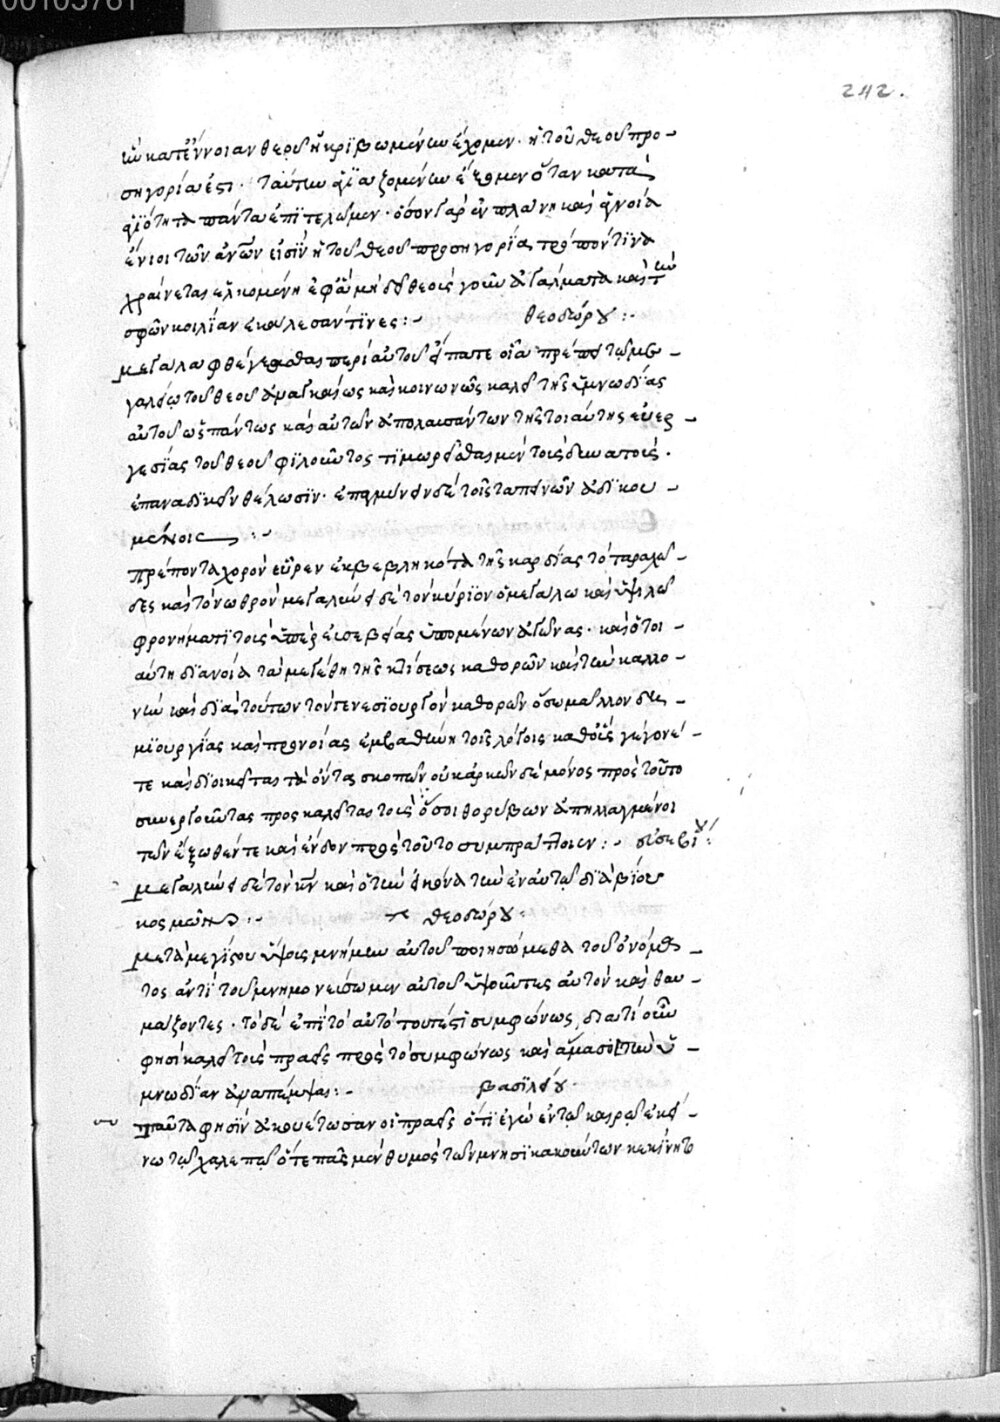 00105761
242.
ὣν κατ' ἔννοιαν θεοῦ ἠκριβωμένην ἔχομεν· ἡ τοῦ θεοῦ προ-
σηγορία ἐστι· ταύτην ἁγιαζομένην ἔχομεν ὅταν κατὰ
ἁγιότητα πάντα ἐπιτελῶμεν· ὅσον γὰρ ἐν πλάνη καὶ ἀγνοία
ἔνιοι τῶν ἀνων εἰσὶν ἡ τοῦ θεοῦ προσηγορία τρόπον τινὰ
χραίνεται ἑλκομένη ἐφ' ἃ μὴ δεῖ θεοῖς γοῦν ἀγάλματα καὶ τὴν
σφῶν κοιλίαν ἐκάλεσάν τινες:- θεοδώρου:-
μεγάλα φθέγεσθαι περὶ αὐτοῦ εἴπατε οἷα πρέπει τῶ με-
γαλείω τοῦ θεοῦ ἀναγκαίως καὶ κοινωνοὺς καλεῖ τῆς ὑμνωδίας
αὐτοῦ ὡς πάντως καὶ αὐτῶν ἀπολαυσάντων τῆς τοιαύτης εὐερ-
γεσίας τοῦ θεοῦ φιλοῦντος τιμωρεῖσθαι μὲν τοὺς δυνατοὺς.
ἐπαναδικεῖν θέλωσιν· ἐπαμύνειν δὲ τοῖς ταπεινῶν ἀδικου-
μένοις:-
πρέποντα χορὸν εὗρεν ἐκβεβληκότα τῆς καρδίας τὸ ταραχῶ-
δες καὶ τὸ νωθρὸν μεγαλύνει δὲ τὸν κύριον ὁ μεγάλω καὶ ὑψηλῶ
φρονήματι τοὺς ὑπὲρ εὐσεβείας ὑπομένων ἀγῶνας· καὶ ὅτοι-
αύτη διανοία τὰ μεγέθη τῆς κτίσεως καθορῶν καὶ τὴν καλλο-
νὴν καὶ διὰ τούτων τὸν γενεσιουργὸν καθορῶν ὅσω μᾶλλον δη-
μιουργίας καὶ προνοίας ἐμβαθύνη τοῖς λόγοις καθ' οὓς γέγονέ-
τε καὶ διοικεῖται τὰ ὄντα σκοπῶν οὐκ ἀρκῶν δὲ μόνος πρὸς τοῦτο
συνεργοῦντας προσκαλεῖται τοὺς ὅσοι θορύβων ἀπηλλαγμένοι
τῶν ἔξωθέν τε καὶ ἔνδον πρὸς τοῦτο συμπράττοιεν:- εὐσεβίου:
μεγαλύνει δὲ τὸν κν καὶ ὁ τὴν εἰκόνα τὴν ἐν αὐτῶ διὰ βίου
κοσμῶν:- θεοδώρου·
μετὰ μεγίστου ὕψους μνήμην αὐτοῦ ποιησώμεθα τοῦ ὀνόμα-
τος ἀντὶ τοῦ μνημονεύσωμεν αὐτοῦ ὑψοῦντες αὐτὸν καὶ θαυ-
μάζοντες· τὸ δὲ ἐπὶ τὸ αὐτὸ τουτέστι συμφώνως, διατί οὖν
φησι καλεῖ τοὺς πραεῖς πρὸς τὸ συμφώνως καὶ ἅμα σοι τὴν ὑ-
μνωδίαν ἀναπέμψαι:- βασιλείου·
ταῦτα φησὶν ἀκουέτωσαν οἱ πραεῖς ὅτι ἐγὼ ἐν τῶ καιρῶ ἐκεί-
νω τῶ χαλεπῶ ὅτε πᾶς μὲν θυμὸς τῶν μνησικακούντων κεκίνητο